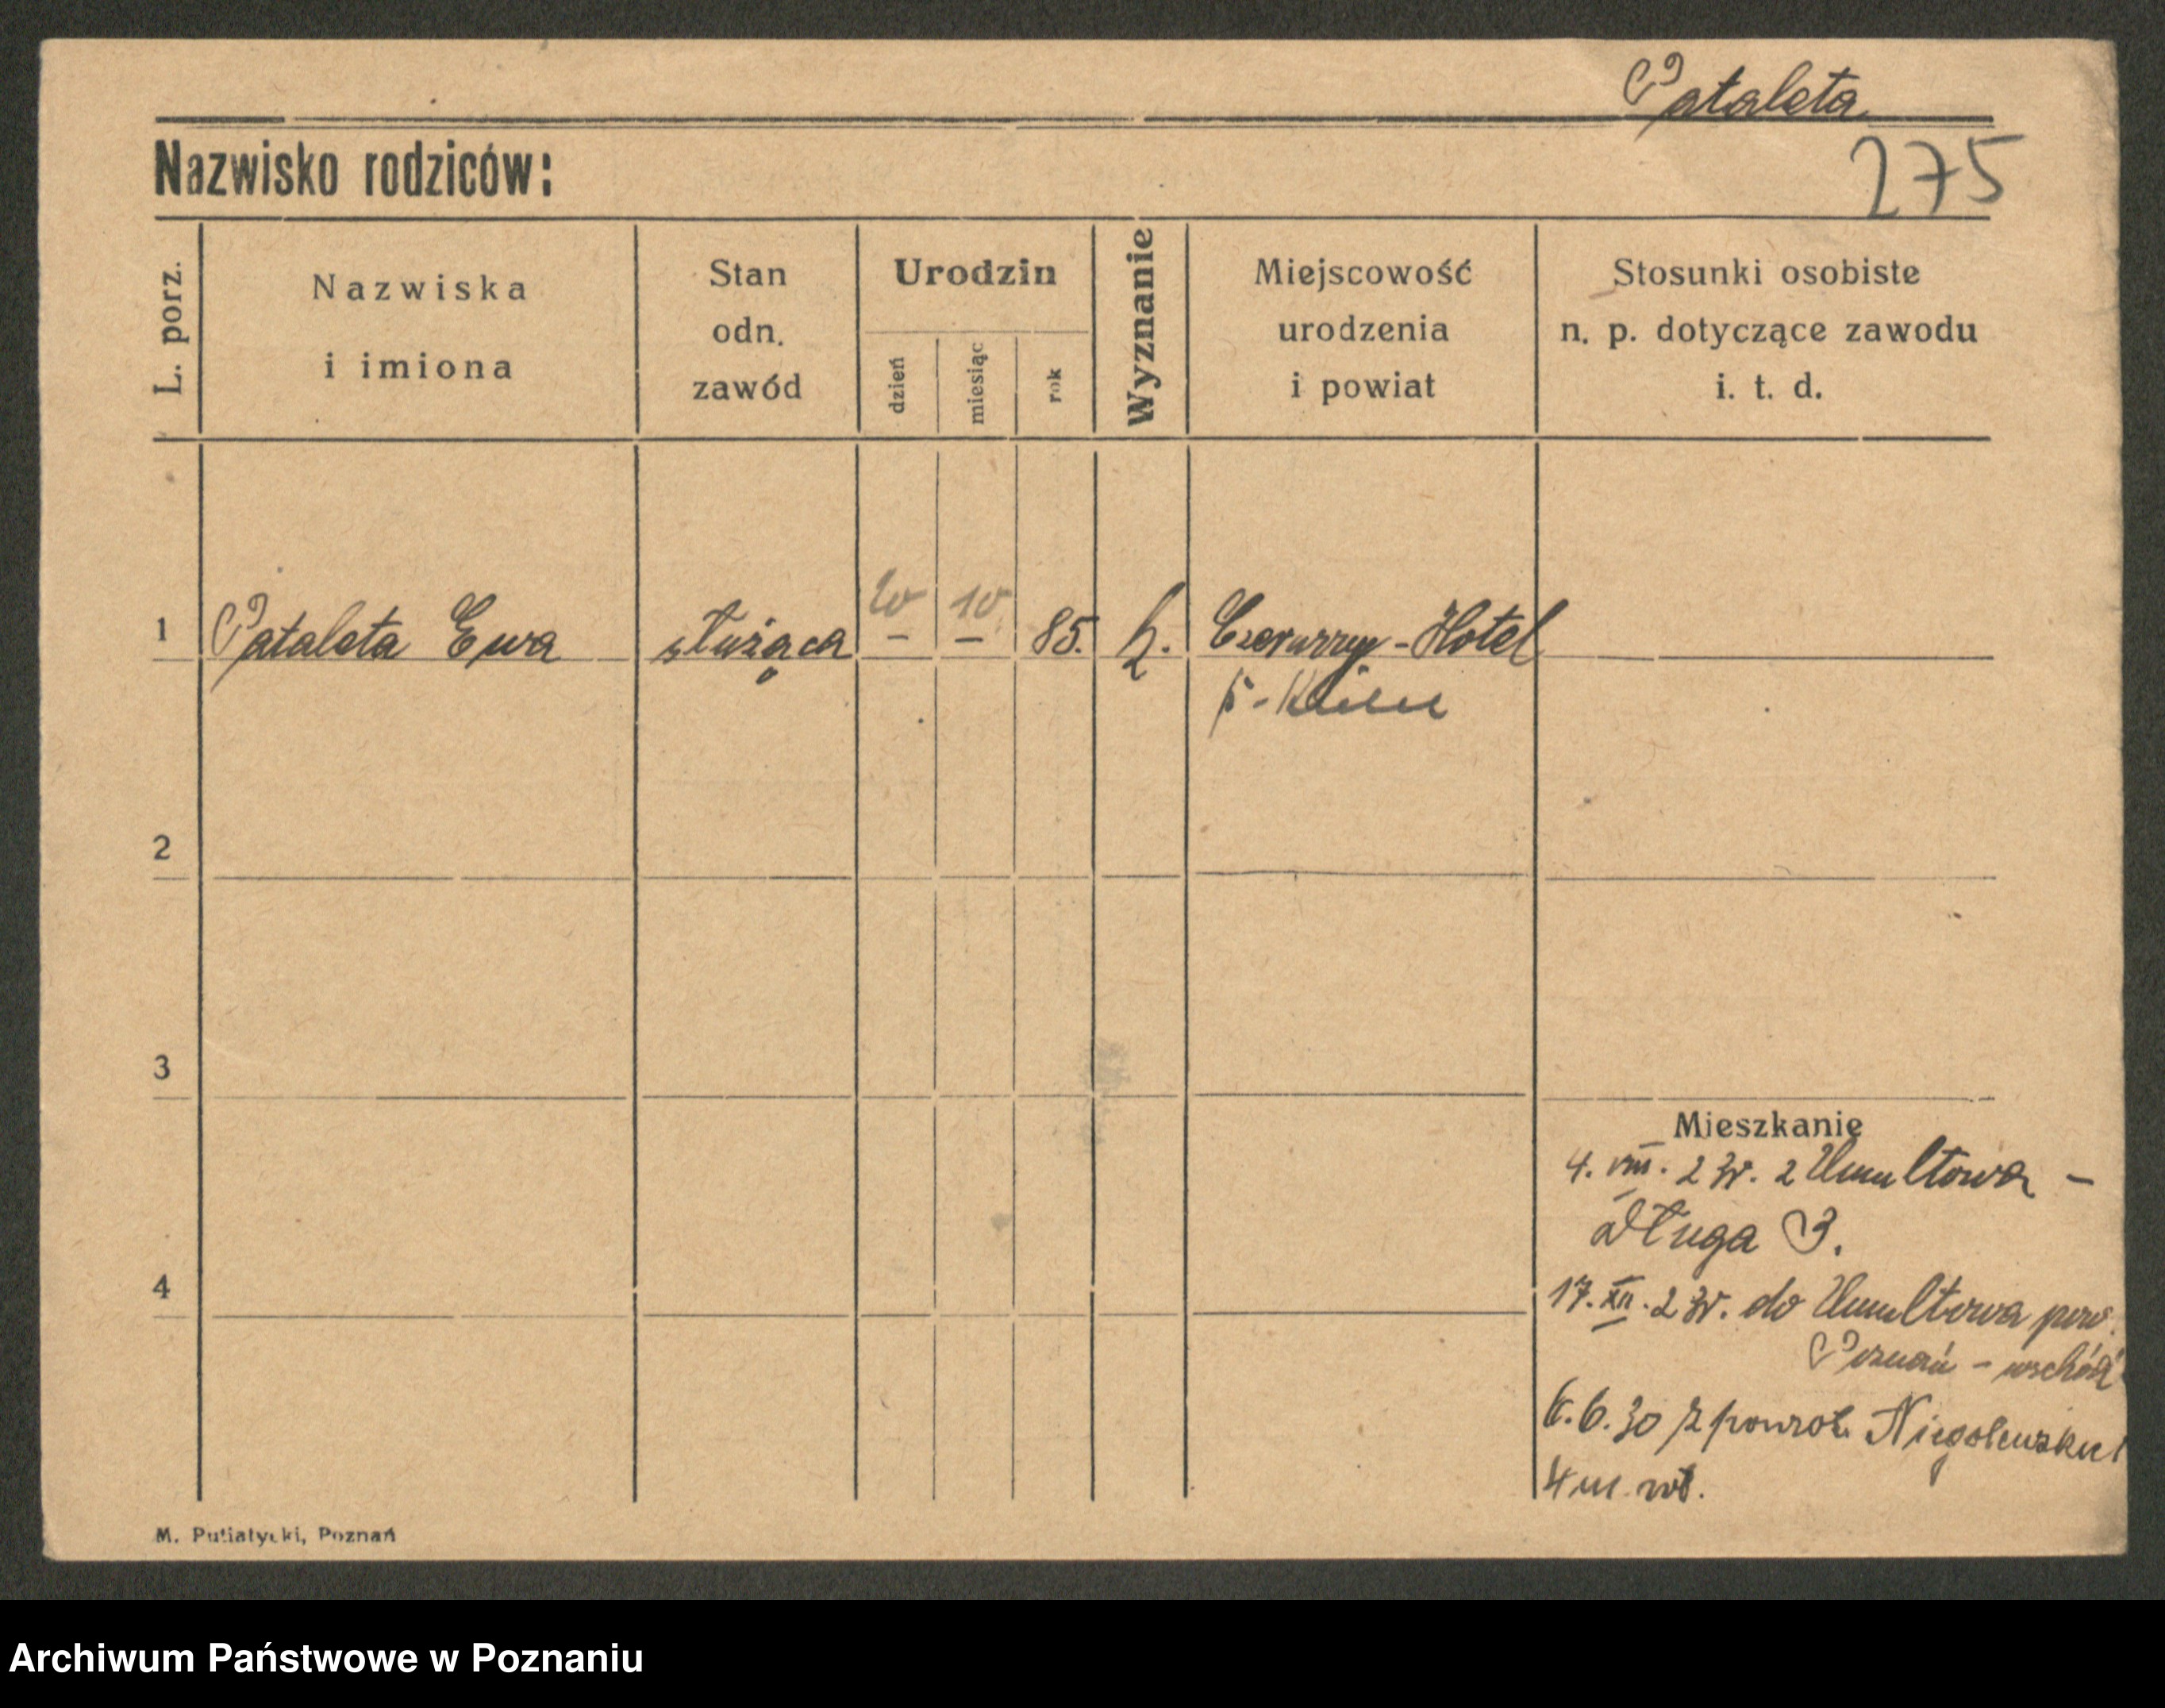 Pataleta
275
Nazwisko rodziców:
L. porz.
Nazwiska
i imiona
Stan
odn.
zawód
Urodzin
dzień
miesiąc
rok
Wyznanie
Miejscowość
urodzenia
i powiat
Stosunki osobiste
n. p. dotyczące zawodu
i. t. d.
1 Pataleta Ewa służąca 10 85. - Hotel
2
3
Mieszkanie
4. VIII. 2 z Umultowa -
Długa 3.
4
17. XII. 2 do Umultowa pow.
Poznań - wschód
6.6.30 z powrot.
4 m.
M. Putiatycki, Poznań
Archiwum Państwowe w Poznaniu